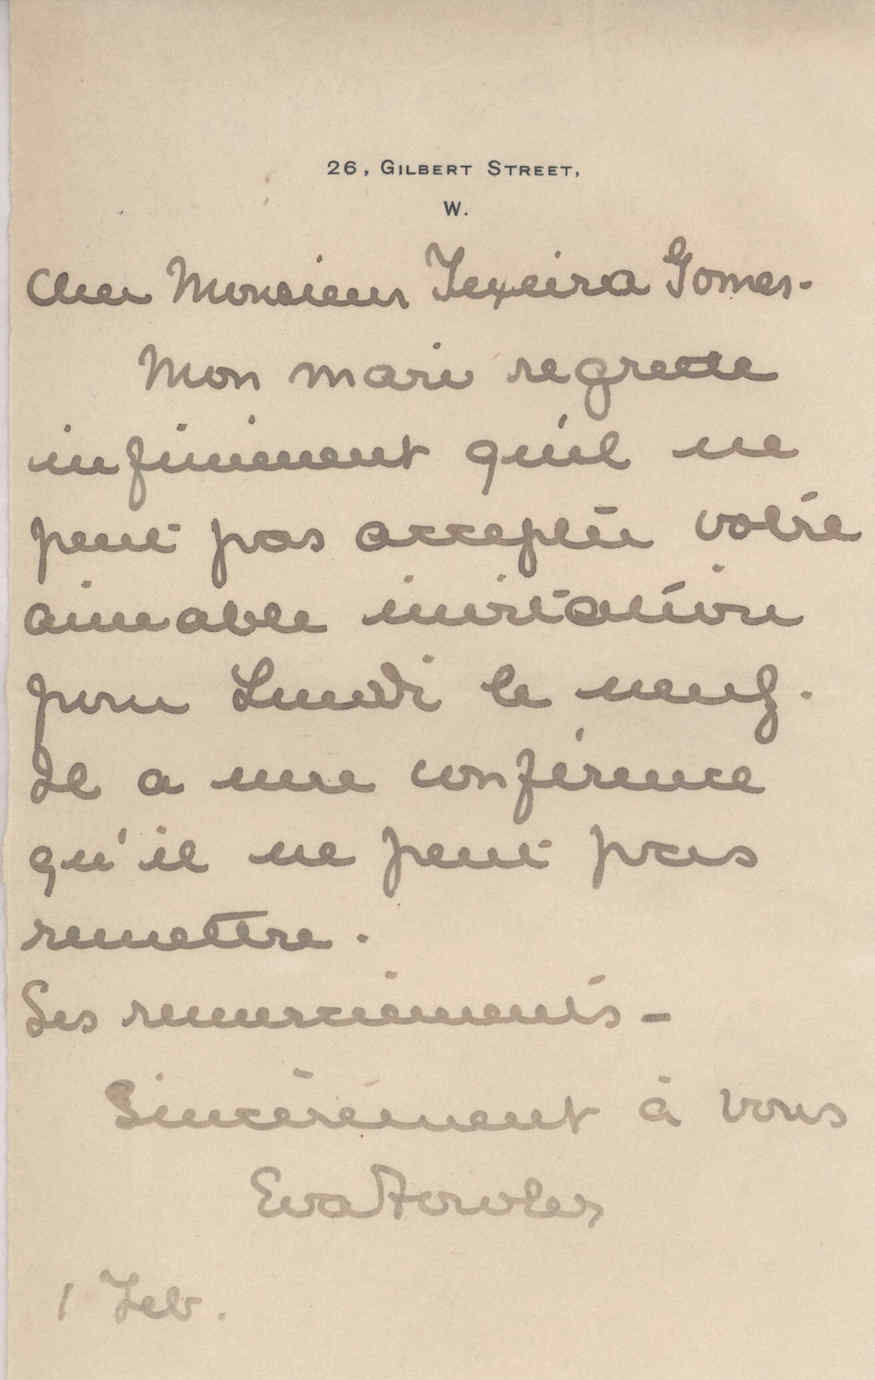 26, GILBERT STREET,
W.
Cher Monsieur Texeira Gomes.
Mon mari regrette
infiniment qu'il ne
peut pas accepter votre
aimable invitation
pour Lundi le neuf.
Il a une conférence
qu'il ne peut pas
remettre.
Ses remerciements -
Sincèrement à vous
Eva Fowler
1 Feb.